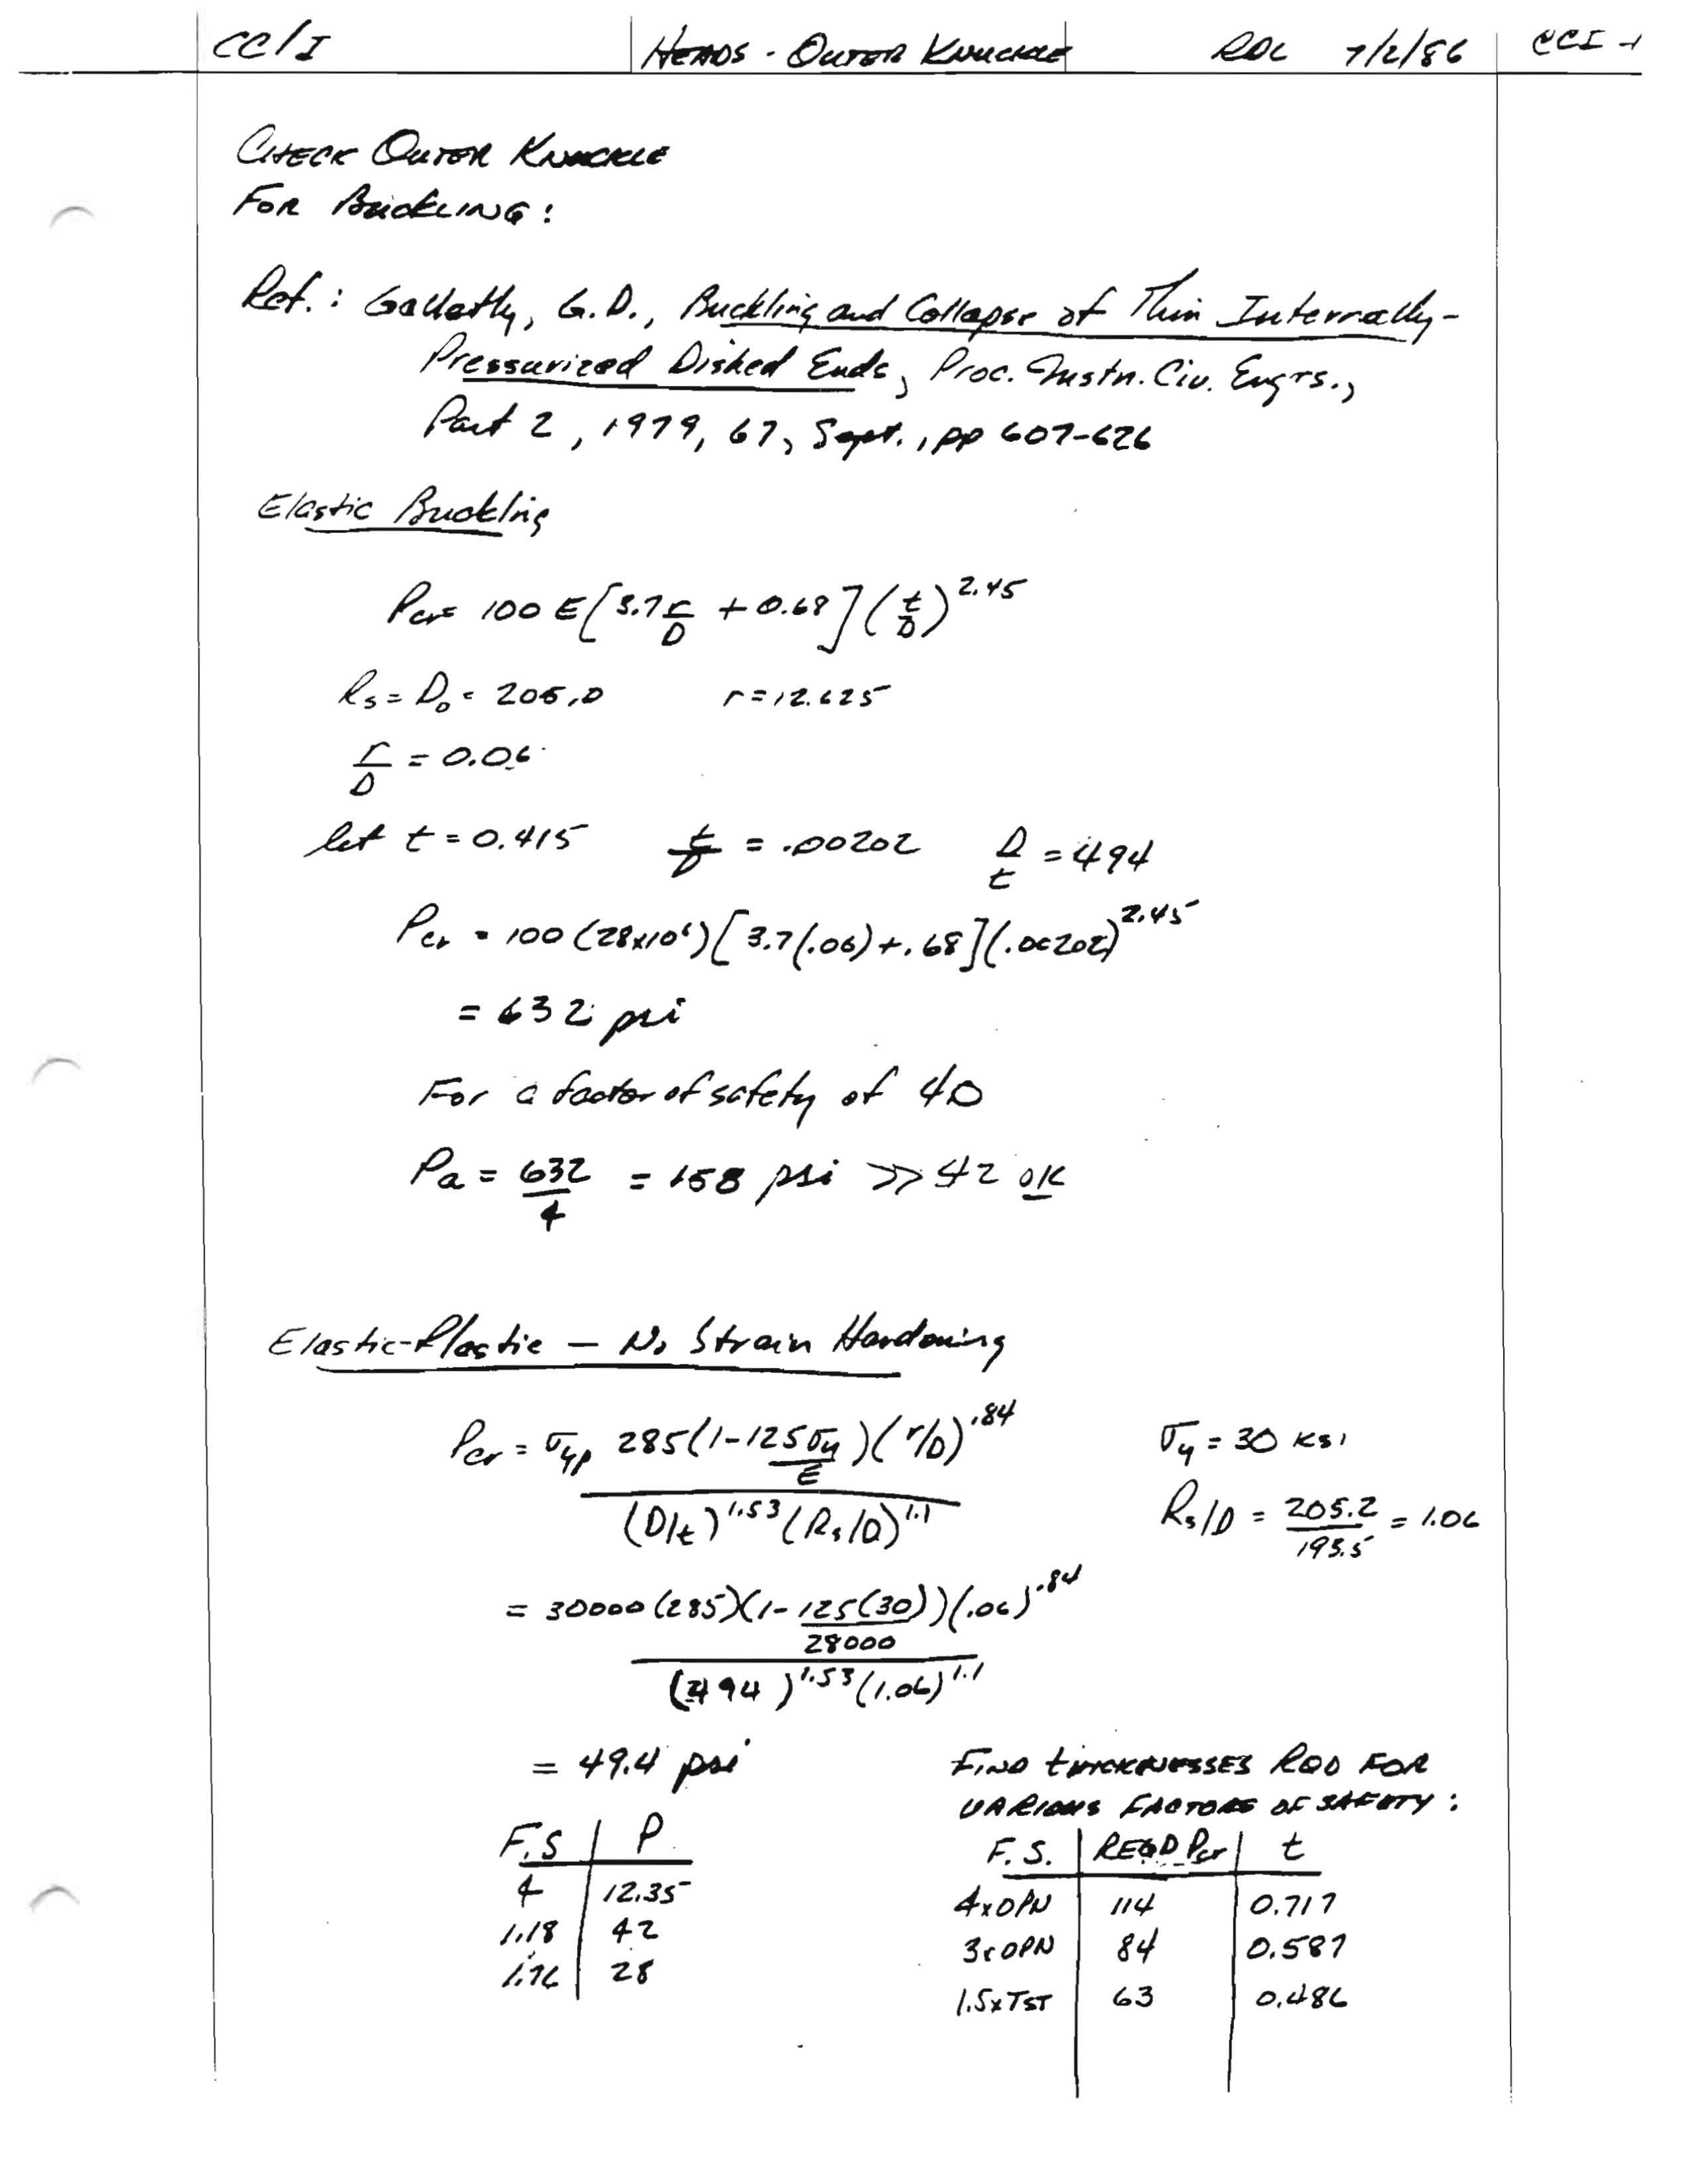 CC/I HEADS - OUTER KNUCKLE RDL 7/2/86 CCI-1
CHECK OUTER KNUCKLE
FOR BUCKLING:
Ref.: Galletly, G.D., Buckling and Collapse of Thin Internally-
Pressurized Dished Ends, Proc. Instn. Civ. Engrs.,
Part 2, 1979, 67, Sept., pp 607-626
Elastic Buckling
Pcr = 100 E[3.7 r/D + 0.68](t/D)^2.45
Rs = Do = 205.0 r = 12.625
r/D = 0.06
let t = 0.415 t/D = .00202 D/t = 494
Pcr = 100 (28x10⁶)[3.7(.06)+.68](.00202)^2.45
= 632 psi
For a factor of safety of 40
Pa = 632/4 = 158 psi >> 42 OK
Elastic-Plastic — No Strain Hardening
Pcr = σyp 285(1-125σy/E)(r/D)^.84 / (D/t)^1.53 (Rs/D)^1.1 σy = 30 ksi
Rs/D = 205.2/193.5 = 1.06
= 30000(285)(1-125(30)/28000)(.06)^.84 / (494)^1.53 (1.06)^1.1
= 49.4 psi
F.S P
4 12.35
1.18 42
1.76 28
FIND THICKNESSES RQD FOR
VARIOUS FACTORS OF SAFETY:
F.S. REQD Pcr t
4xOPN 114 0.717
3xOPN 84 0.587
1.5xTST 63 0.486